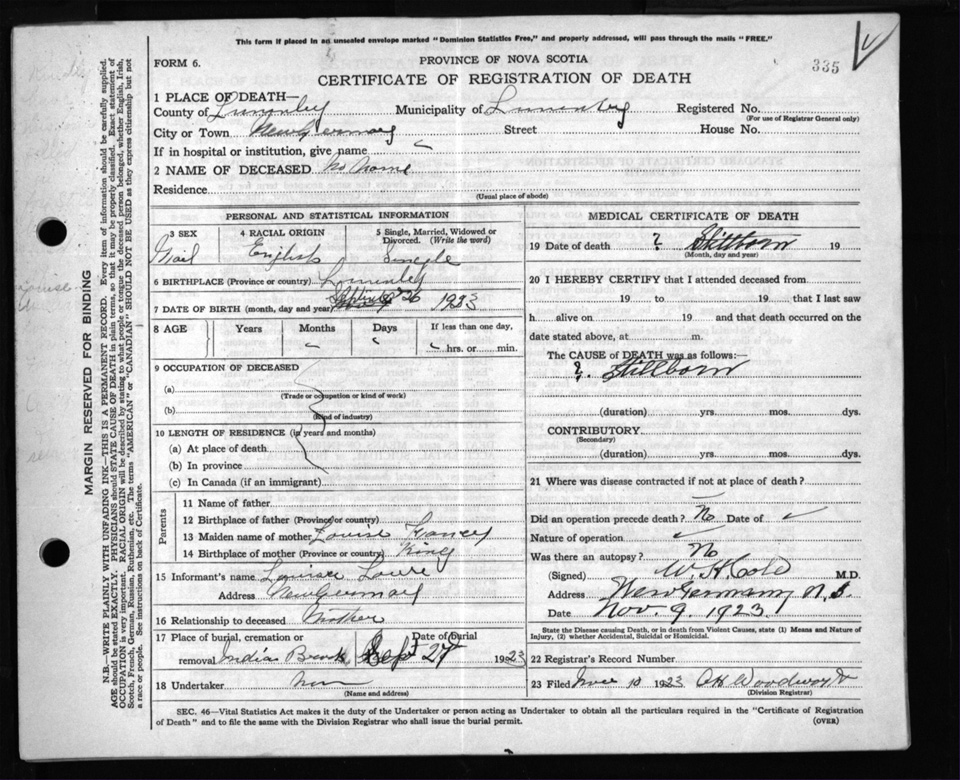 This form if placed in an unsealed envelope marked "Dominion Statistics Free," and properly addressed, will pass through the mails "FREE."
335
FORM 6.
PROVINCE OF NOVA SCOTIA
CERTIFICATE OF REGISTRATION OF DEATH
1 PLACE OF DEATH—
County of Municipality of Lunenburg Registered No.
(For use of Registrar General only)
City or Town New Germany Street House No.
If in hospital or institution, give name
2 NAME OF DECEASED No Name
Residence
(Usual place of abode)
PERSONAL AND STATISTICAL INFORMATION
3 SEX 4 RACIAL ORIGIN 5 Single, Married, Widowed or Divorced. (Write the word)
English
6 BIRTHPLACE (Province or country)
7 DATE OF BIRTH (month, day and year) 26 1923
8 AGE Years Months Days If less than one day,
hrs. or min.
9 OCCUPATION OF DECEASED
(a)
(Trade or occupation or kind of work)
(b)
(Kind of industry)
10 LENGTH OF RESIDENCE (in years and months)
(a) At place of death
(b) In province
(c) In Canada (if an immigrant)
Parents
11 Name of father
12 Birthplace of father (Province or country)
13 Maiden name of mother Louise
14 Birthplace of mother (Province or country)
15 Informant's name
Address New Germany
16 Relationship to deceased Mother
17 Place of burial, cremation or removal Date of burial
Indian Brook Sept 27 1923
18 Undertaker
(Name and address)
MEDICAL CERTIFICATE OF DEATH
19 Date of death ? Stillborn 19
(Month, day and year)
20 I HEREBY CERTIFY that I attended deceased from
19 to 19 that I last saw
h alive on 19 and that death occurred on the
date stated above, at m.
The CAUSE of DEATH was as follows:—
?. Stillborn
(duration) yrs. mos. dys.
CONTRIBUTORY
(Secondary)
(duration) yrs. mos. dys.
21 Where was disease contracted if not at place of death?
Did an operation precede death? No Date of
Nature of operation
Was there an autopsy? No
(Signed) W. H. Cole M.D.
Address New Germany N.S.
Date Nov 9. 1923.
State the Disease causing Death, or in death from Violent Causes, state (1) Means and Nature of
Injury, (2) whether Accidental, Suicidal or Homicidal.
22 Registrar's Record Number
23 Filed 10 1923
(Division Registrar)
SEC. 46—Vital Statistics Act makes it the duty of the Undertaker or person acting as Undertaker to obtain all the particulars required in the "Certificate of Registration
of Death" and to file the same with the Division Registrar who shall issue the burial permit. (OVER)
MARGIN RESERVED FOR BINDING
N.B.—WRITE PLAINLY WITH UNFADING INK—THIS IS A PERMANENT RECORD. Every item of information should be carefully supplied.
AGE should be stated EXACTLY. PHYSICIANS should STATE CAUSE OF DEATH in plain terms, so that it may be properly classified. Exact statement of
OCCUPATION is very important. RACIAL ORIGIN will be described by stating to what people or tongue the deceased person belonged, whether English, Irish,
Scotch, French, German, Russian, Ruthenian, etc. The terms "AMERICAN" or "CANADIAN" SHOULD NOT BE USED as they express citizenship but not
a race or people. See instructions on back of Certificate.